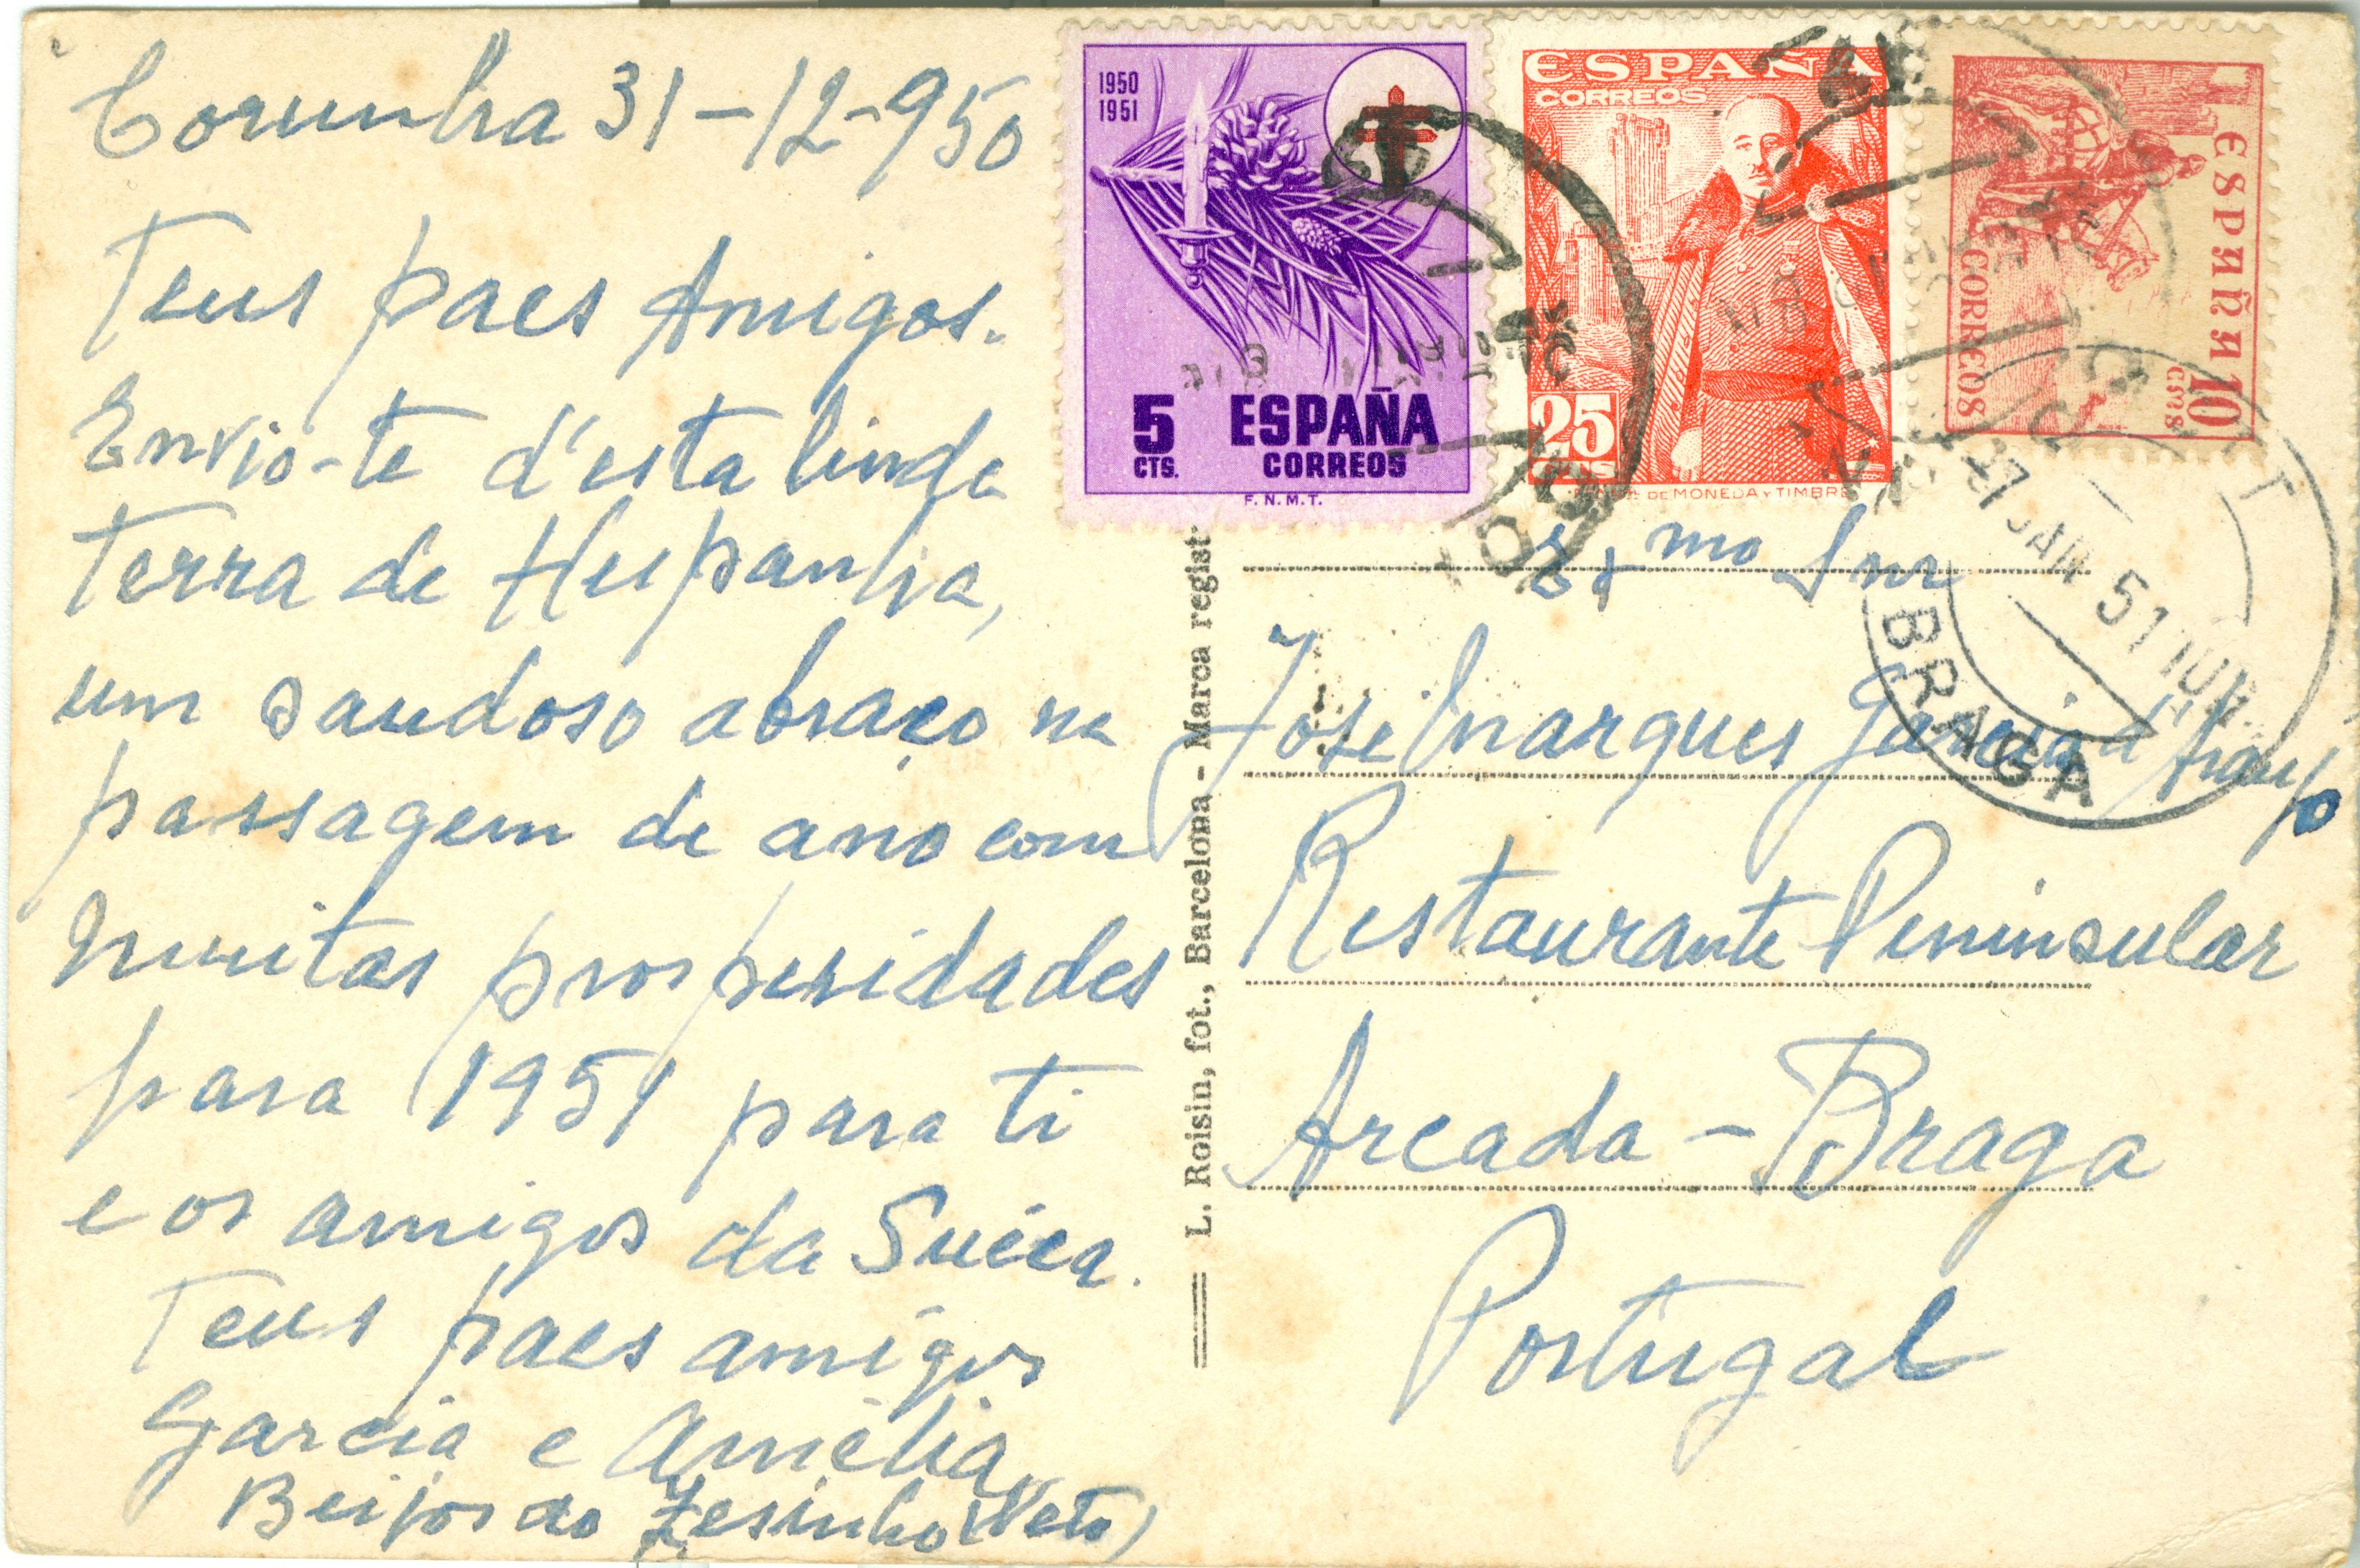 Corunha 31-12-950
Teus paes Amigos.
Envio-te d'esta linda
terra de Hespanha,
um saudoso abraço na
passagem de ano com
muitas prosperidades
para 1951 para ti
e os amigos da Suéca.
Teus paes amigos
Garcia e Amélia
Beijos do Zesinho (Neto)
1950
1951
5
CTS.
ESPAÑA
CORREOS
F.N.M.T.
ESPAÑA
CORREOS
25
CTS
DE MONEDA Y TIMBRE
ESPAÑA
CORREOS
10
CTS
27 JAN 51
BRAGA
L. Roisin, fot., Barcelona - Marca regist
Exmo Snr
José Marques Garcia d'Araujo
Restaurante Peninsular
Arcada - Braga
Portugal